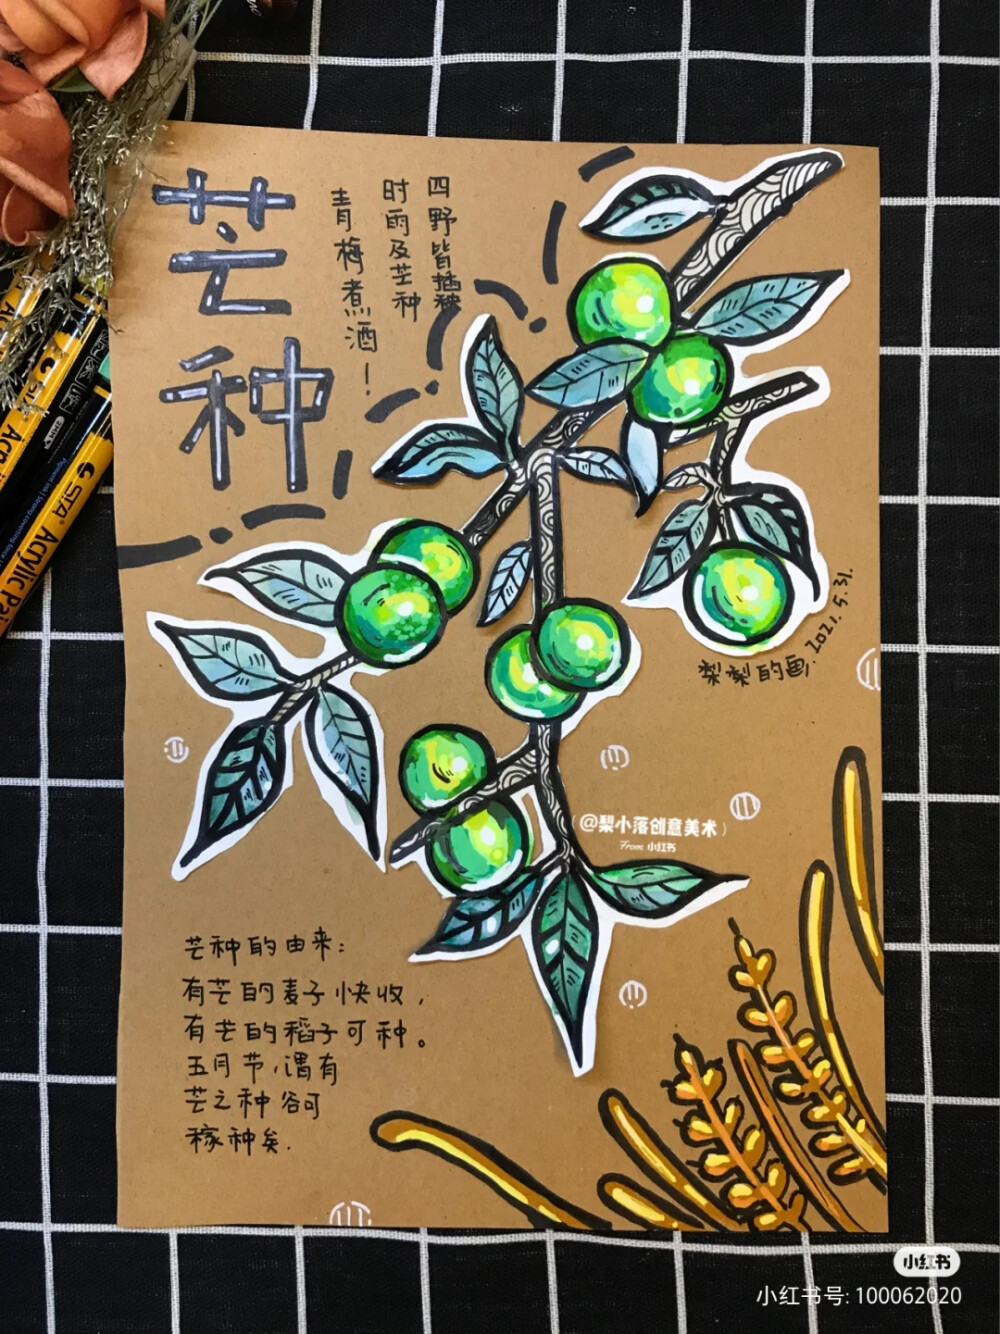 芒种
四野皆插秧
时雨及芒种
青梅煮酒！
梨梨的画.2021.5.31.
(@梨小落创意美术)
From 小红书
芒种的由来：
有芒的麦子快收，
有芒的稻子可种。
五月节，谓有
芒之种谷可
稼种矣.
STA® Acrylic Pai
小红书
小红书号: 100062020